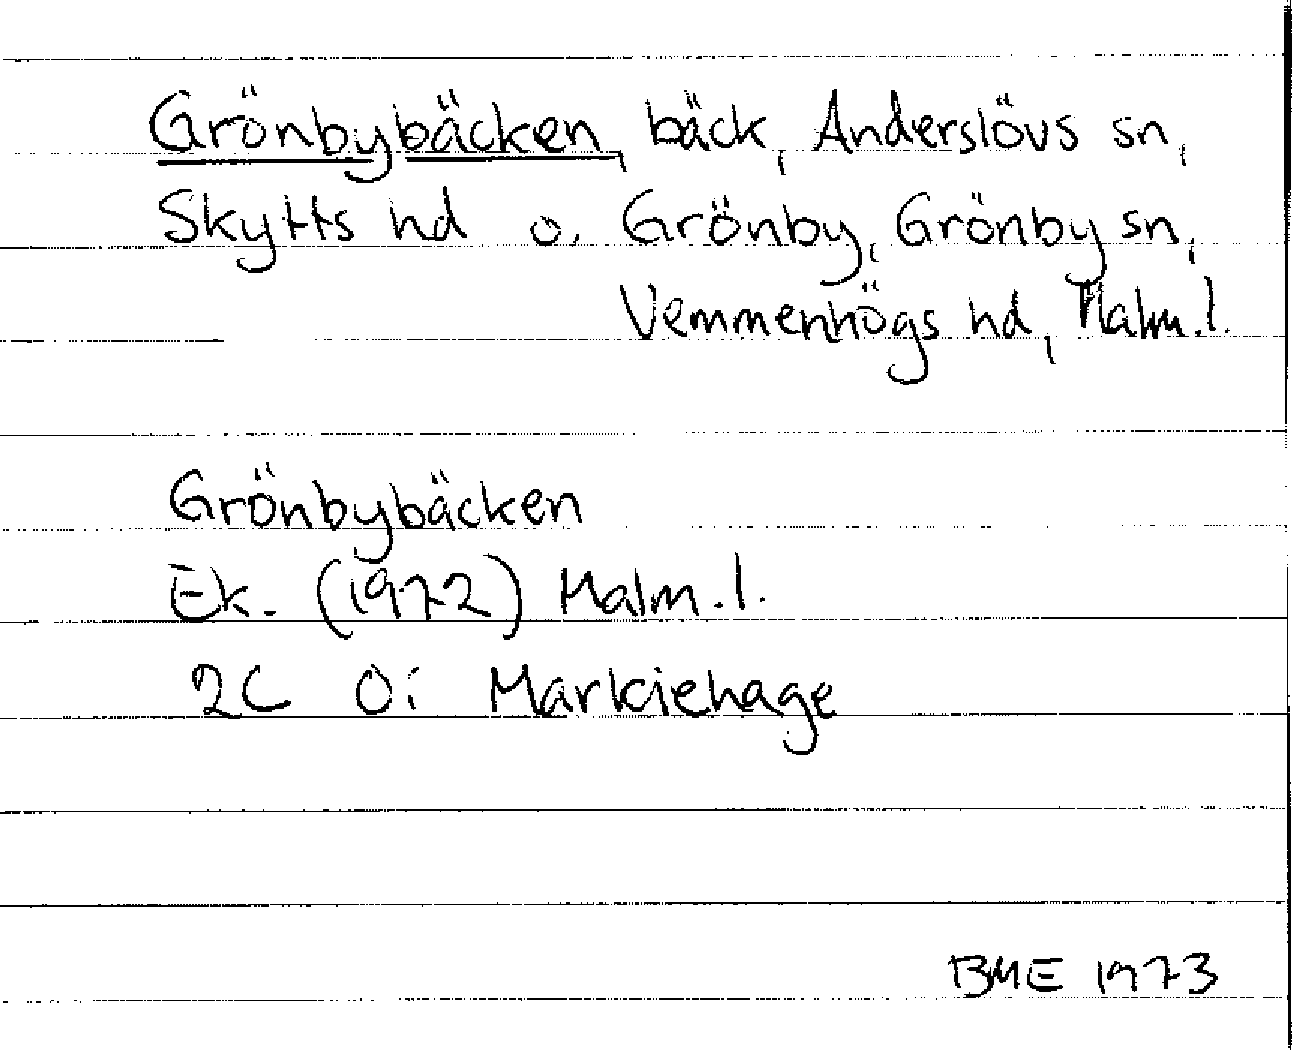 Grönbybäcken, bäck, Anderslövs sn,
Skytts hd o. Grönby, Grönby sn,
Vemmenhögs hd, Malm.l.
Grönbybäcken
Ek. (1972) Malm.l.
2C Öi Markiehage
BME 1973